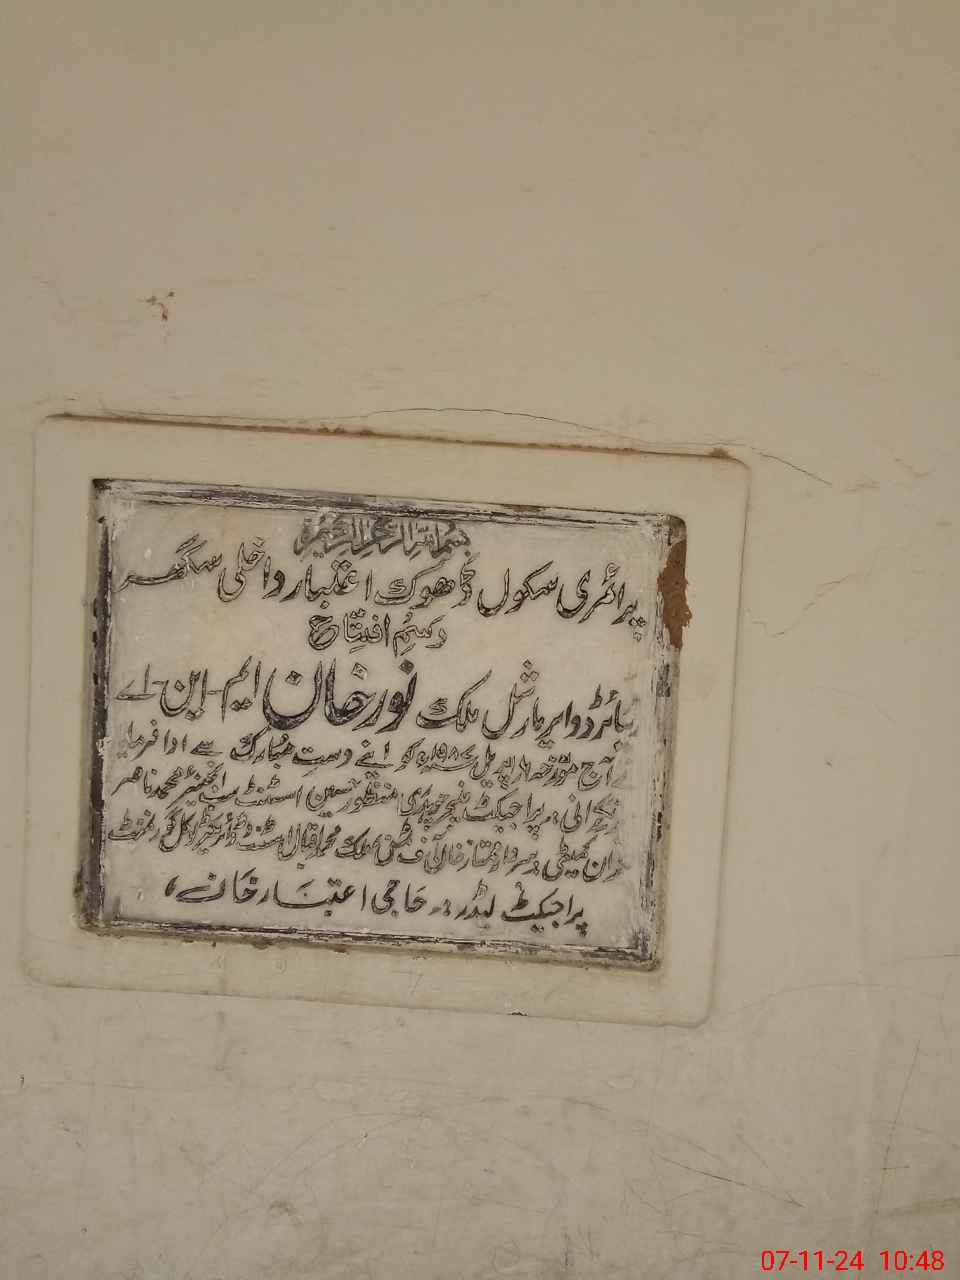 بسم اللہ الرحمن الرحیم
پرائمری سکول ڈھوک اعتبار داخلی سگھر
رسم افتتاح
ریٹائرڈ ایرمارشل ملک نور خان ایم-این-اے
نے آج مورخہ اپریل ۱۹۸۶ء کو اپنے دستِ مبارک سے ادا فرمائی
زیرنگرانی:۔ پراجیکٹ منیجر چوہدری منظور حسین اسسٹنٹ انجینئر محمد ناصر
کمیٹی:۔ سردار ممتاز خان آف ملک محمد اقبال اسسٹنٹ ڈائریکٹر لوکل گورنمنٹ
پراجیکٹ لیڈر:۔ حاجی اعتبار خان
07-11-24 10:48